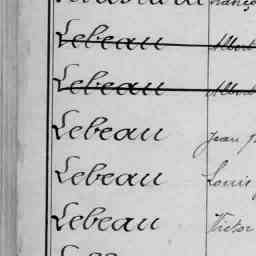 Lebeau Albert
Lebeau Albert
Lebeau Jean
Lebeau Louis
Lebeau Victor